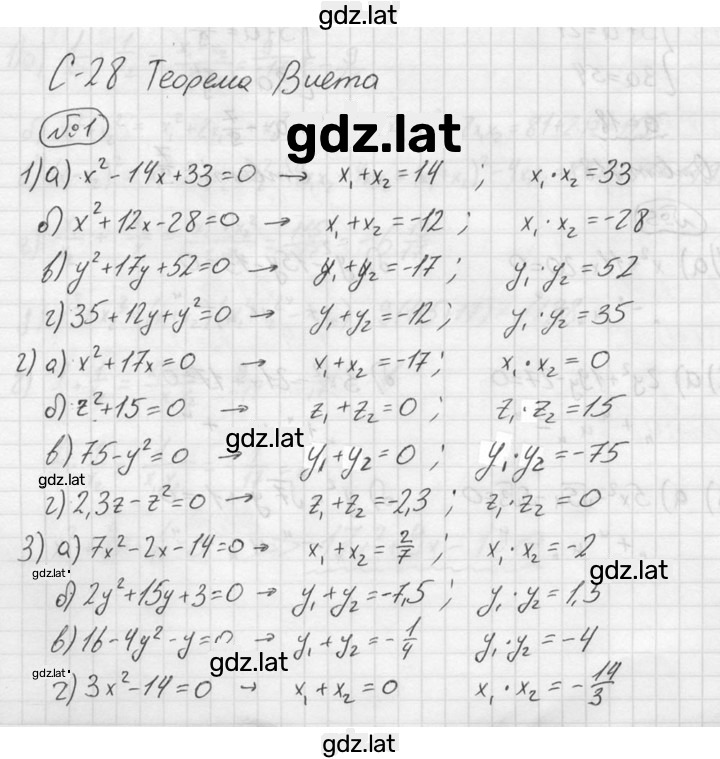 gdz.lat
С-28 Теорема Виета
№1
gdz.lat
1) а) x² - 14x + 33 = 0 → x₁ + x₂ = 14 ; x₁ · x₂ = 33
б) x² + 12x - 28 = 0 → x₁ + x₂ = -12 ; x₁ · x₂ = -28
в) y² + 17y + 52 = 0 → y₁ + y₂ = -17 ; y₁ · y₂ = 52
г) 35 + 12y + y² = 0 → y₁ + y₂ = -12 ; y₁ · y₂ = 35
2) а) x² + 17x = 0 → x₁ + x₂ = -17 ; x₁ · x₂ = 0
б) z² + 15 = 0 → z₁ + z₂ = 0 ; z₁ · z₂ = 15
gdz.lat
в) 75 - y² = 0 → y₁ + y₂ = 0 ; y₁ · y₂ = -75
gdz.lat
г) 2,3z - z² = 0 → z₁ + z₂ = -2,3 ; z₁ · z₂ = 0
3) а) 7x² - 2x - 14 = 0 → x₁ + x₂ = 2/7 ; x₁ · x₂ = -2
gdz.lat
gdz.lat
б) 2y² + 15y + 3 = 0 → y₁ + y₂ = -7,5 ; y₁ · y₂ = 1,5
в) 16 - 4y² - y = 0 → y₁ + y₂ = -1/4 y₁ · y₂ = -4
gdz.lat
gdz.lat
г) 3x² - 14 = 0 → x₁ + x₂ = 0 x₁ · x₂ = -14/3
gdz.lat